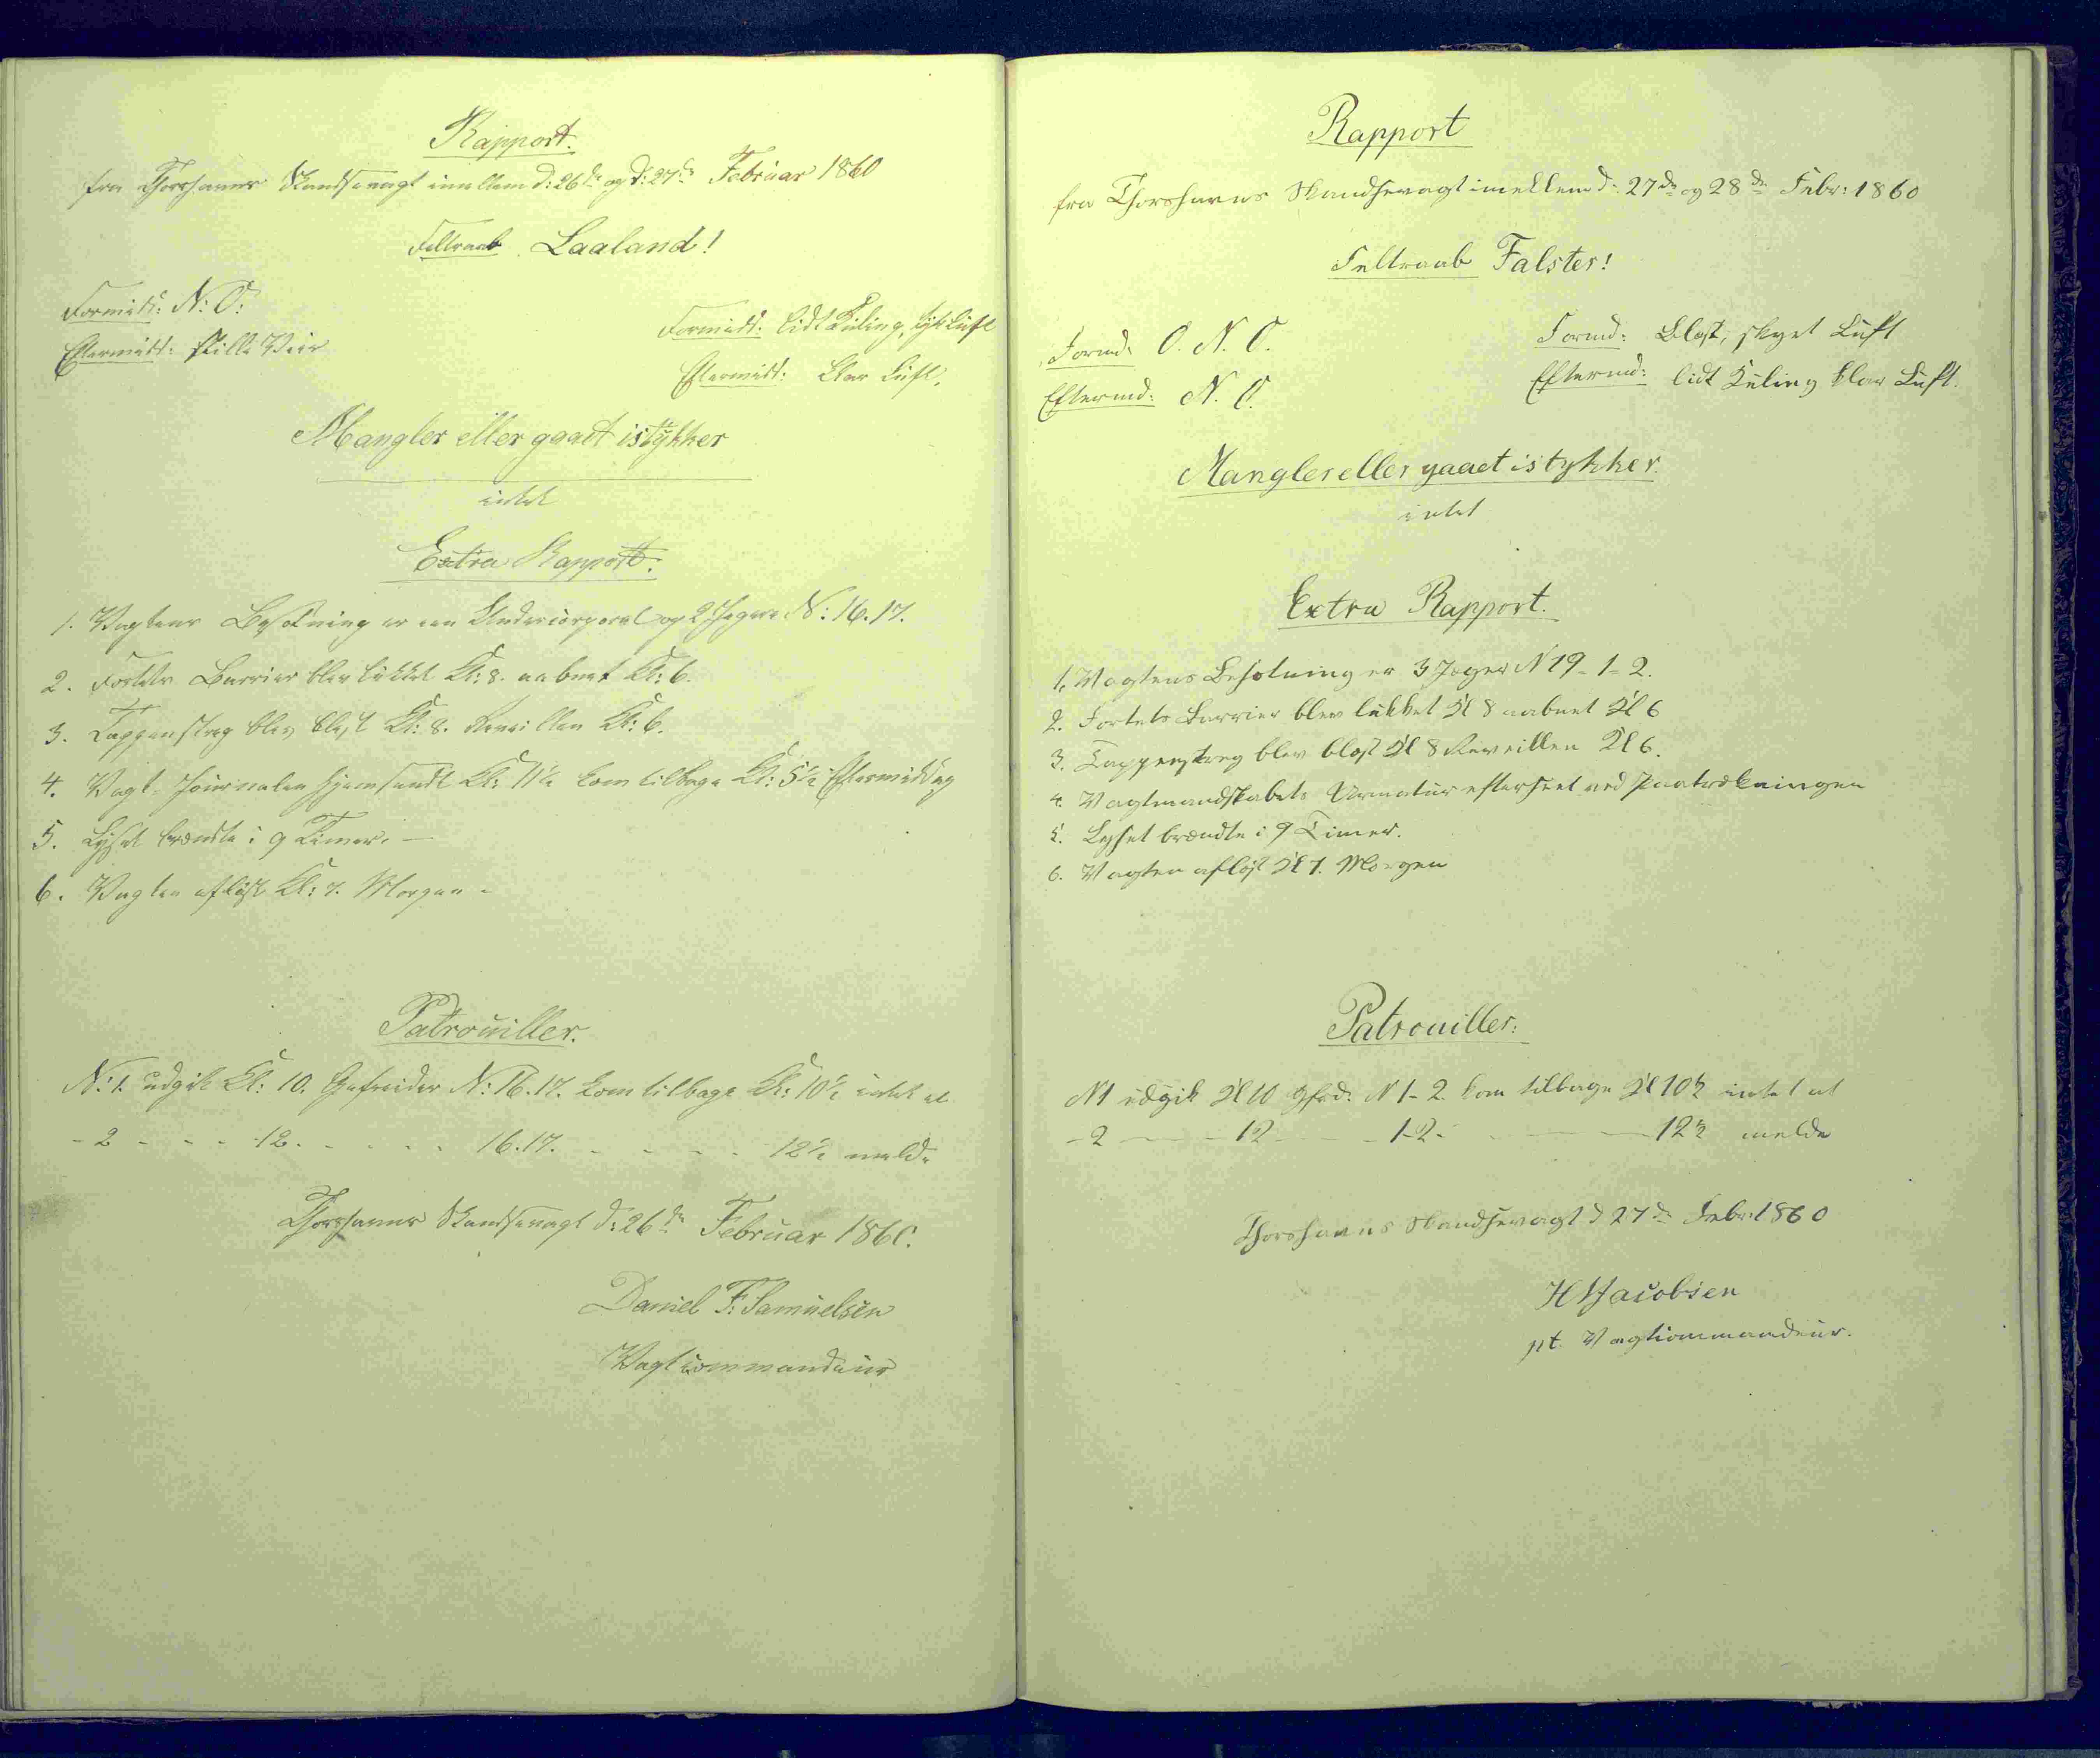 Rapport.
fra Thorshavns Skandsevagt imellem d: 26de og d: 27de Februar 1860
Feltraab Laaland!
Formidd: N: O:
Formidd: lidt Kuling, tyk Luft
Eftermidd: stille Veir
Eftermidd: klar Luft.
Mangler eller gaaet istykker
intet
Extra Rapport.
1. Vagtens Besætning er een Undercorporal og 2 Jægere N: 16. 17.
2. Fortets Barrier blev lukket Kl: 8. aabnet Kl: 6.
3. Tappenstreg blev blæst Kl: 8. Reveillen Kl: 6.
4. Vagt-Journalen hjemsendt Kl: 11½ kom tilbage Kl: 5½ Eftermiddag
5. Lyset brændte i 9 Timer. —
6. Vagten afløst Kl: 7. Morgen -
Patrouiller.
N: 1. udgik Kl: 10. Gefreider N: 16. 17. kom tilbage Kl: 10½ intet at
- 2 - - - 12. - - - - 16. 17. - - - - 12½ melde
Thorshavns Skandsevagt d: 26de Februar 1860.
Daniel F. Samuelsen
Vagtcommandeur
Rapport
fra Thorshavns Skandsevagt imellem d: 27de og 28de Febr: 1860
Feltraab Falster!
Formd: O. N. O.
Formd: Blæst, skyet Luft
Eftermd: N. O.
Eftermd: lidt Kuling klar Luft.
Mangler eller gaaet istykker.
intet
Extra Rapport.
1. Vagtens Besætning er 3 Jæger N 19 - 1 - 2.
2. Fortets Barrier blev lukket Kl 8 aabnet Kl 6
3. Tappenstreg blev blæst Kl 8 Reveillen Kl 6.
4. Vagtmandskabets Armatur efterseet ved Paatrækningen
5. Lyset brændte i 9 Timer.
6. Vagten afløst Kl 7. Morgen
Patrouiller.
N 1 udgik Kl 10 Gfrd: N 1 - 2. kom tilbage Kl 10½ intet at
- 2 — - 12 - - - 1-2. - — 12½ melde
Thorshavns Skandsevagt d 27de Febr: 1860
H Jacobsen
pt. Vagtcommandeur.